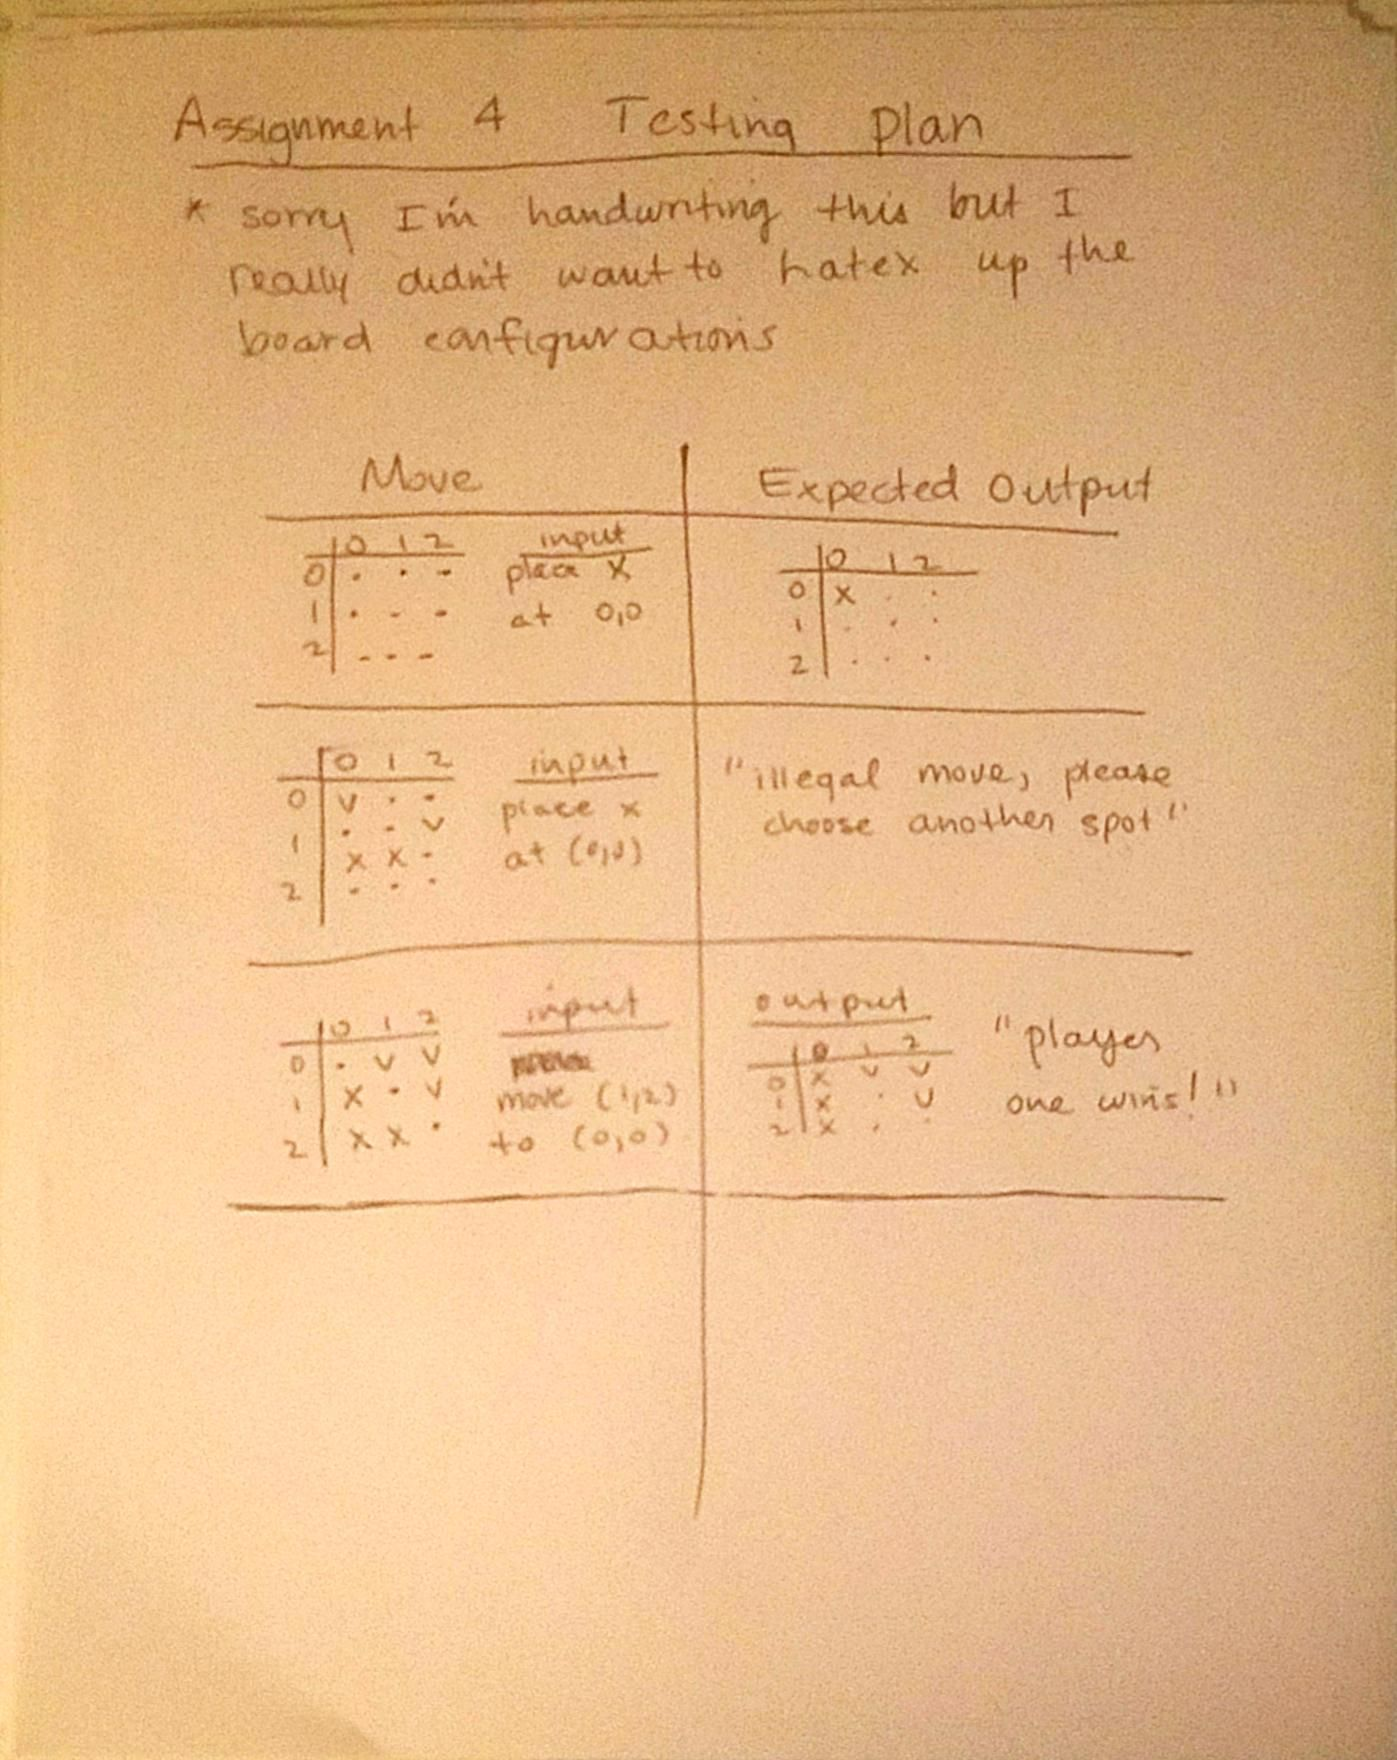 Assignment 4 Testing Plan
* sorry I'm handwriting this but I
really didn't want to hatex up the
board configurations
Move
Expected Output
0 1 2
0 . . -
1 . - -
2 - - -
input
place X
at 0,0
0 1 2
0 X . .
1 . . .
2 . . .
0 1 2
0 v . .
. - v
1
x x -
2 . . .
input
place x
at (0,0)
"illegal move, please
choose another spot"
0 1 2
0 . v v
1 x . v
2 x x .
input
move (1,2)
to (0,0)
output
0 1 2
0 x v v
1 x . v
2 x . .
"player
one wins!"